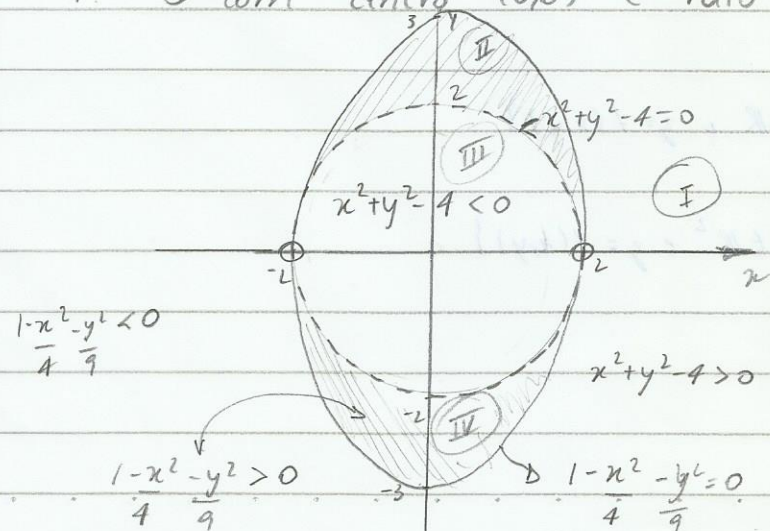 com centro (0,0) e raio
3 y
II
2
x²+y²-4=0
III
I
x²+y²-4<0
-2
2
x
1-x²/4-y²/9<0
x²+y²-4>0
-2
IV
1-x²/4-y²/9>0
1-x²/4-y²/9=0
-3